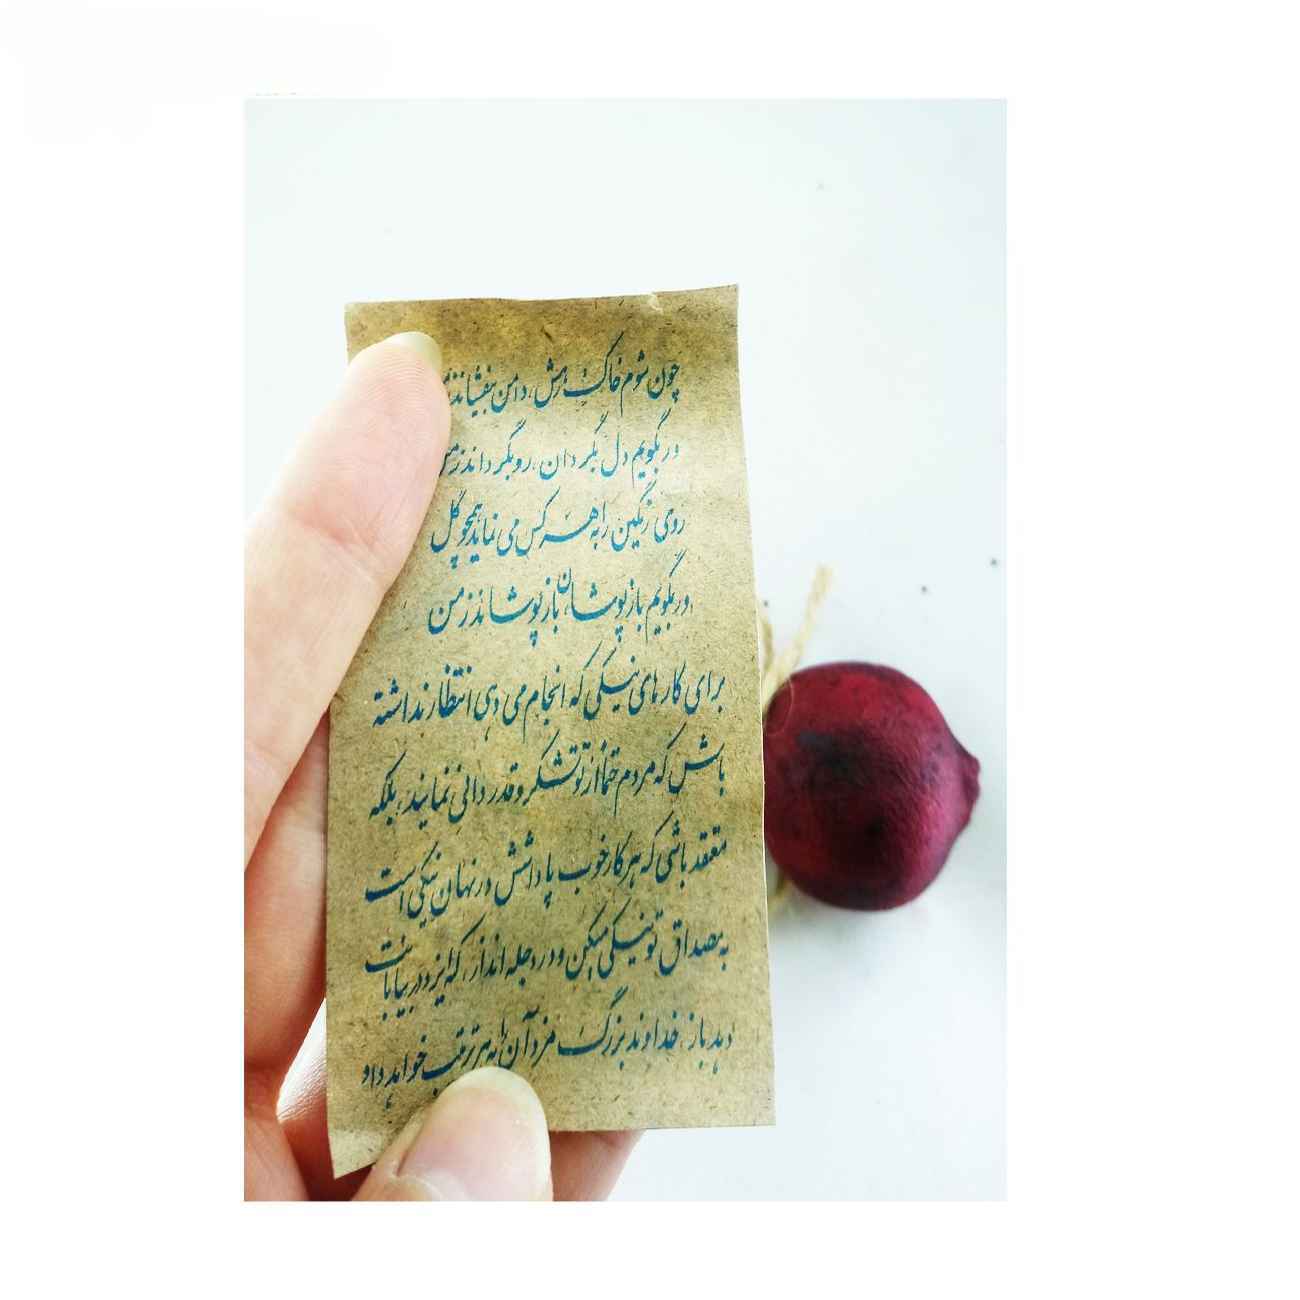 چون شوم خاک رهش، دامن بیفشاند ز من
ور بگویم دل بگردان، رو بگرداند ز من
روی رنگین را به هر کس می نماید همچو گل
ور بگویم باز پوشان، باز پوشاند ز من
برای کارهای نیکی که انجام می دهی انتظار نداشته
باش که مردم حتما از تو تشکر و قدردانی نمایند، بلکه
معتقد باشی که هر کار خوب پاداشش در نهان نیکی است
به مصداق تو نیکی میکن و در دجله انداز، که ایزد در بیابانت
دهد باز، خداوند بزرگ مزد آن را به هر ترتیب خواهد داد